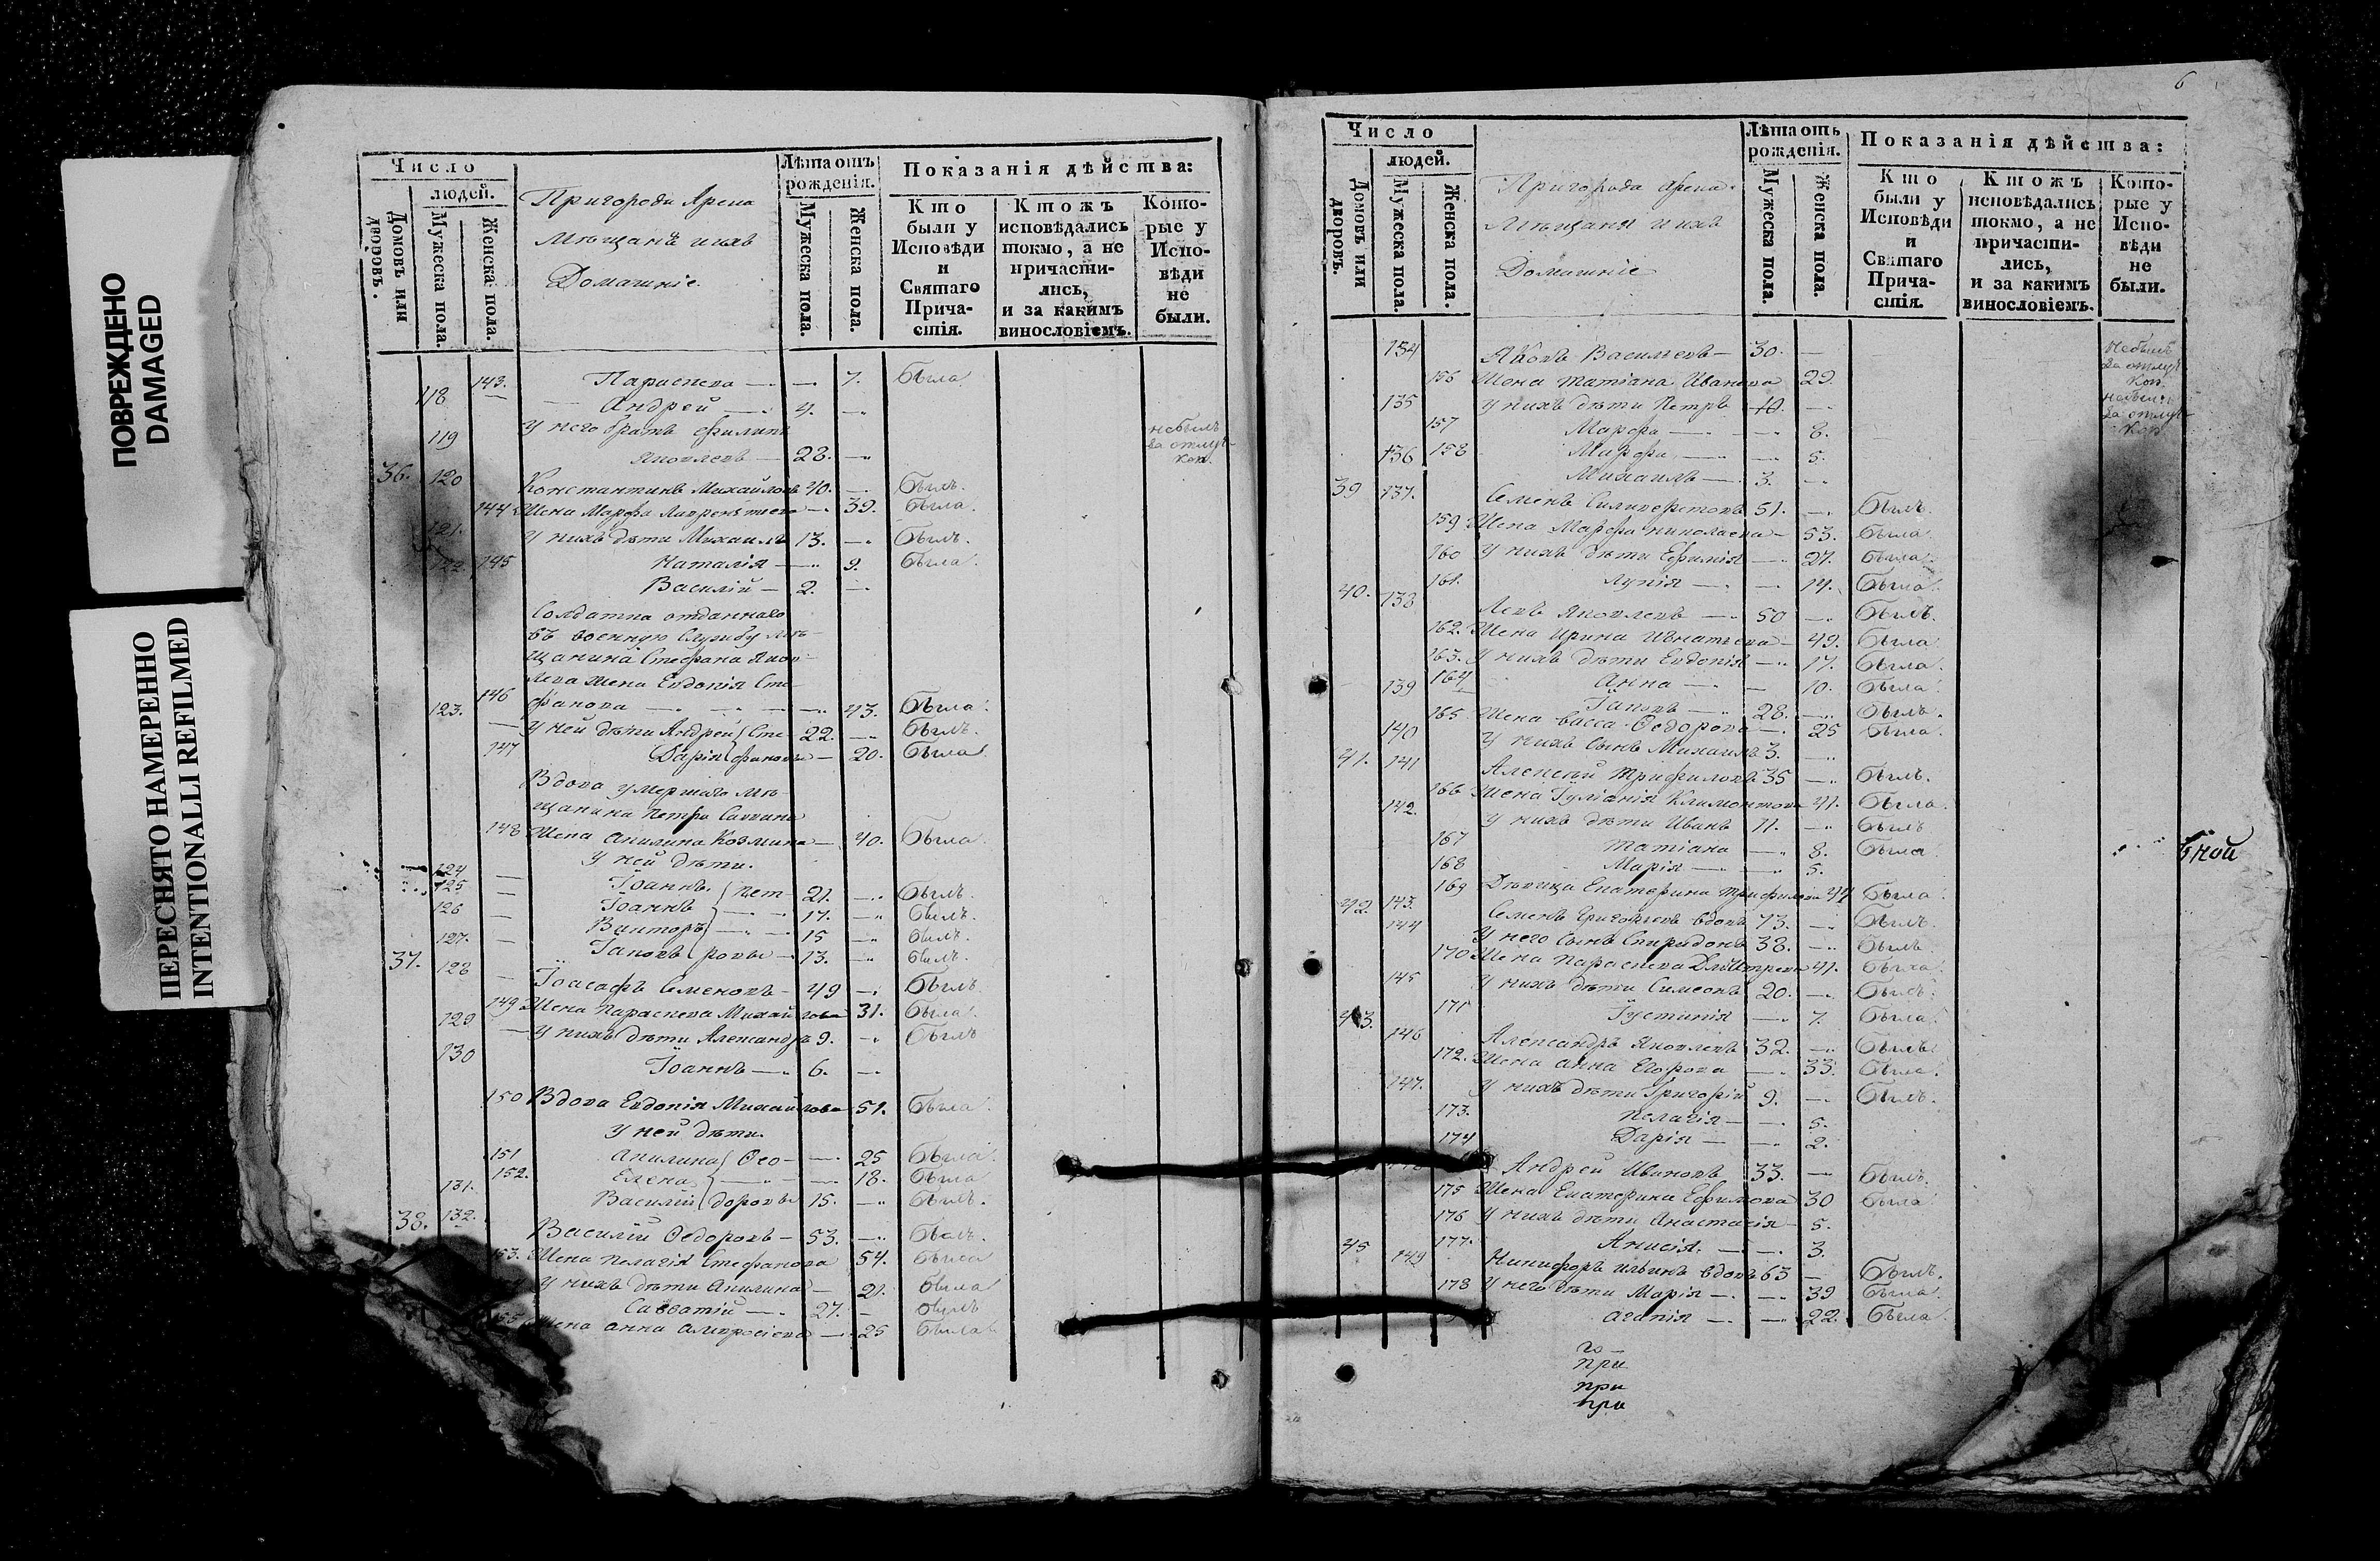 ПОВРЕЖДЕНО
DAMAGED
ПЕРЕСНЯТО НАМЕРЕННО
INTENTIONALLI REFILMED
Число
людей.
Домовъ или дворовъ.
Мужеска пола.
Женска пола.
Пригорода Арска
Мѣщанѣ и ихъ
Домашніе
Лѣта отъ рожденія.
Мужеска пола.
Женска пола.
Показанія дѣйства:
Кто были у Исповѣди и Святаго Причастія.
Ктожъ исповѣдались токмо, а не причастились, и за какимъ винословіемъ.
Которые у Исповѣди не были.
143. Параскева — 7. была
118 Андрей 4. —
У него братъ Филипъ
119 Яковлевъ 28. — небылъ за отлучкою
36. 120 Константинъ Михайловъ 40. — былъ.
144 Жена Марфа Лаврентьева — 39. была.
121. У нихъ дѣти Михаилъ 13. — былъ.
145 Наталія — 9. была.
122 Василій 2. —
Солдатка отданнаго
въ военную службу мѣ-
щанина Стефана Яков-
лева жена Евдокія Сте-
146 фанова — 43. была.
123. У ней дѣти Андрей Сте- 22. — былъ.
147 Дарія фановы — 20. была
Вдова умершаго мѣ-
щанина Петра Саввина
148 Жена Акилина Козмина — 40. была.
У ней дѣти.
124 Іоаннъ Пет- 21. — былъ.
125 Іоаннъ 17. — былъ.
126 Викторъ 15 — былъ.
127. Іаковъ ровы 13. — былъ.
37. 128 Іоасафъ Семеновъ 49 — былъ.
149 Жена Параскева Михайлова 31. была.
129 У нихъ дѣти Александръ 9. — былъ
130 Іоаннъ 6. —
150 Вдова Евдокія Михайлова 51. была.
У ней дѣти.
151 Акилина Ѳео- — 25 была.
152. Елена — 18. была
131. Василій доровы 15. — былъ.
38. 132. Василій Ѳедоровъ 53. — былъ.
153. Жена Пелагія Стефанова 54. была
У нихъ дѣти Акилина — 21. была
Савватій 27. — былъ
155 Жена Анна Амвросіева — 25 была.
6
Число
людей.
Домовъ или дворовъ.
Мужеска пола.
Женска пола.
Пригорода Арска
Мѣщанѣ и ихъ
Домашніе
Лѣта отъ рожденія.
Мужеска пола.
Женска пола.
Показанія дѣйства:
Кто были у Исповѣди и Святаго Причастія.
Ктожъ исповѣдались токмо, а не причастились, и за какимъ винословіемъ.
Которые у Исповѣди не были.
134 Яковъ Васильевъ 30. — небылъ за отлучкою
156 Жена Татіана Иванова 29.
135 У нихъ дѣти Петръ 10. — небылъ за отлучкою
157 Марфа — 8.
158 Марфа — 5.
136 Михаилъ 3. —
39 137. Семенъ Силиверстовъ 51. — былъ.
159 Жена Марфа Николаева 53. была
160 У нихъ дѣти Евфимія — 27. была.
161. Лукія — 14. была.
40. 138 Левъ Яковлевъ 50 — былъ.
162. Жена Ирина Игнатьева 49. была
163. У нихъ дѣти Евдокія 17. была.
164 Анна — 10. была.
139 Іаковъ 28. — былъ.
165 Жена Васса Ѳедорова — 25 была.
140 У нихъ сынъ Михаилъ 3. —
41. 141 Алексѣй Трифиловъ 35 — былъ.
166 Жена Іуліанія Климонтова 41. была.
142. У нихъ дѣти Иванъ 11. — былъ
167 Татіана — 8. была
168 Марія — 5.
169 Дѣвица Екатерина Трифилова 44 была
42. 143. Семенъ Григорьевъ вдовъ 73. — былъ.
144 У него сынъ Спиридонъ 38. — былъ
170 Жена Параскева Димитрева 41. была.
145 У нихъ дѣти Симеонъ 20. — былъ.
171 Іустинія — 7. была.
43. 146 Александръ Яковлевъ 32. — былъ.
172. Жена Анна Егорова — 33. была.
147. У нихъ дѣти Григорій 9. — былъ.
173. Пелагія — 5.
174 Дарія — 2.
Андрей Ивановъ 33. — былъ.
175 Жена Екатерина Ефимова 30 была
176 У нихъ дѣти Анастасія 5.
177. Анисія. — 3.
45 149 Никифоръ Ильинъ вдовъ 63 — былъ.
178 У него дѣти Марія — 39 была.
Агапія — 22. была.
ной
го
при
при
при